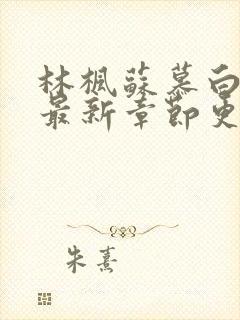 林楓蘇慕白
最新章節更
朱熹